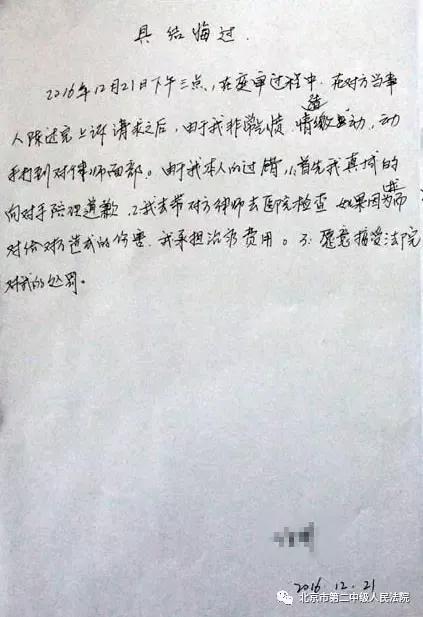 具结悔过
2016年12月21日下午三点,在庭审过程中,在对方当事
人陈述完上诉请求之后,由于我非常气愤,情绪激动,动
手打到对方律师面部。由于我本人的过错,1,首先我真诚的
向对手赔礼道歉,2,我去带对方律师去医院检查,如果因为
对给对方造成的伤害,我承担治疗费用。3、愿意接受法院
对我的处罚。
2016.12.21
北京市第二中级人民法院